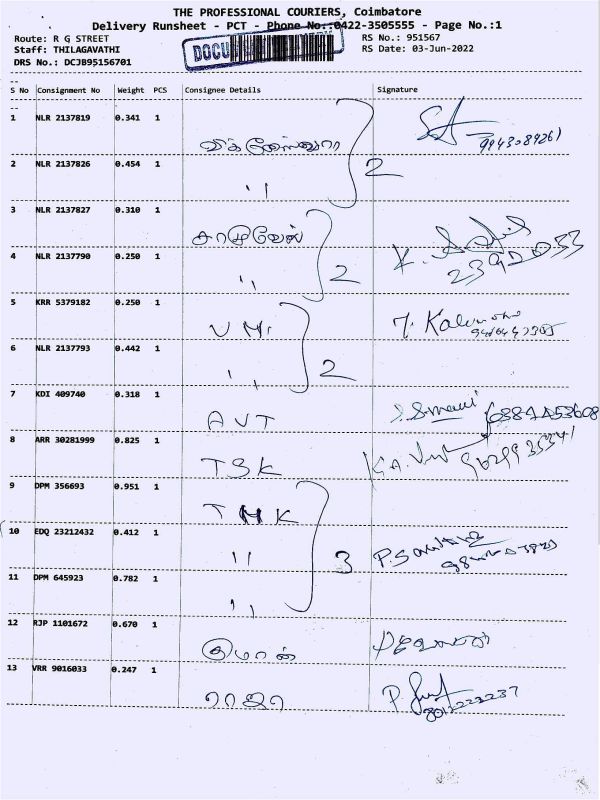 THE PROFESSIONAL COURIERS, Coimbatore
Delivery Runsheet - PCT - Phone No.:0422-3505555 - Page No.:1
Route: R G STREET RS No.: 951567
Staff: THILAGAVATHI DOCU RS Date: 03-Jun-2022
DRS No.: DCJB95156701
S No Consignment No Weight PCS Consignee Details Signature
1 NLR 2137819 0.341 1
விக்னேஸ்வரா 2 9943089261
2 NLR 2137826 0.454 1
,,
3 NLR 2137827 0.310 1
சாமுவேல் 2 K.
4 NLR 2137790 0.250 1
,,
5 KRR 5379182 0.250 1
V M 2
6 NLR 2137793 0.442 1
,,
7 KDI 409740 0.318 1
AVT
8 ARR 30281999 0.825 1
TSK
9 DPM 356693 0.951 1
TMK
10 EDQ 23212432 0.412 1
,, 3
11 DPM 645923 0.782 1
,,
12 RJP 1101672 0.670 1
13 VRR 9016033 0.247 1
ராஜா P.